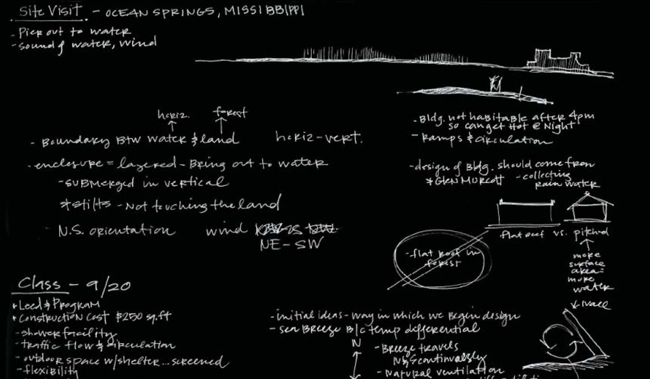 Site Visit - OCEAN SPRINGS, MISSISSIPPI
- Pier out to water
- sound of water, wind
horiz. forest
- Boundary Btw water & land horiz-vert.
- enclosure = layered - Bring out to water
- submerged in vertical
* stilts - Not touching the land
- N.S. orientation wind
NE - SW
- Bldg. not habitable after 4pm
so can get Hot @ Night
- Ramps & circulation
- design of Bldg. should come from
* Glen Murcott - collecting
rain water
flat roof vs. pitched
- flat roof in
forest
more
surface
area =
more
water
Class - 9/20
* Leed & Program
* Construction Cost $250 sq.ft
- shower facility
- traffic flow & circulation
- outdoor space w/shelter... screened
- flexibility
- initial ideas - way in which we begin design
- sea Breeze B/c temp differential
N
- Breeze travels
N/S continuously
- Natural ventilation